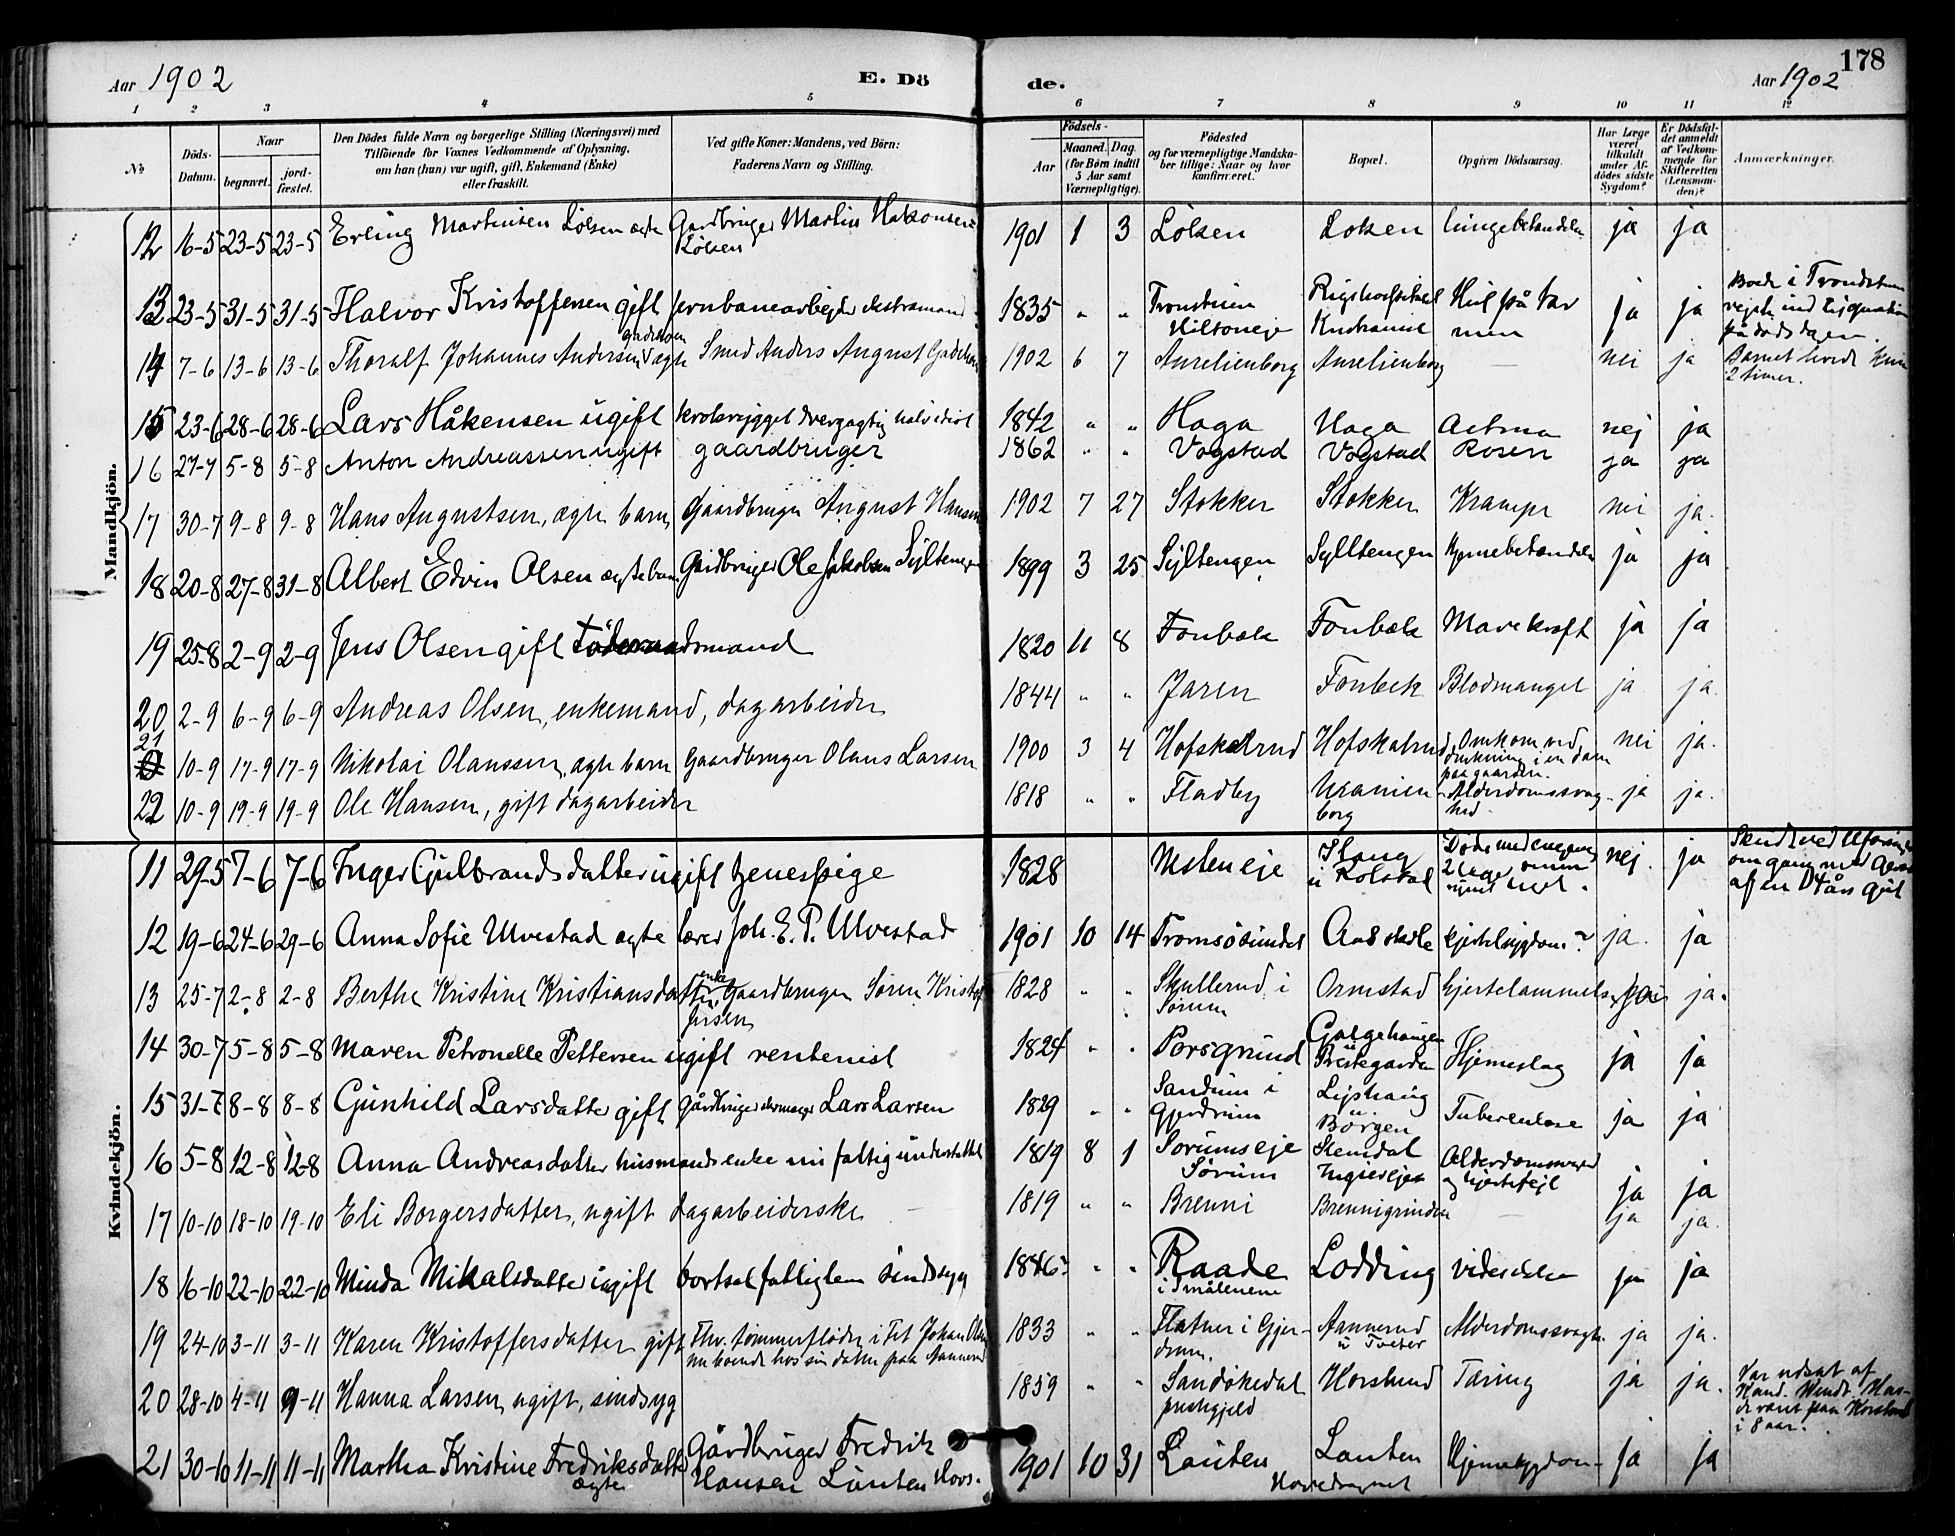 178
Aar 1902 E. Dö de. Aar 1902
1 2 3 4 5 6 7 8 9 10 11 12
No Döds-Datum. Naar begravet. jordfæstet. Den Dödes fulde Navn og borgerlige Stilling (Næringsvei) med Tilföiende for Voxnes Vedkommende af Oplysning, om han (hun) var ugift, gift, Enkemand (Enke) eller fraskilt. Ved gifte Koner: Mandens, ved Börn: Faderens Navn og Stilling. Födsels- Aar Maaned. Dag. (for Börn indtil 5 Aar samt Værnepligtige). Födested og for værnepligtige Mandskaber tillige: Naar og hvor konfirmeret. Bopæl. Opgiven Dödsaarsag. Har Læge været tilkaldt under Afdödes sidste Sygdom? Er Dödsfaldet anmeldt af Vedkommende for Skifteretten (Lensmanden)? Anmærkninger.
Mandkjön.
12 16-5 23-5 23-5 Erling Martinsen Lölsen ægte Gardbruger Martin Hakonsen Lölsen 1901 1 3 Lölsen ja ja
13 23-5 31-5 31-5 Halvor Kristoffersen gift Jernbanearbejder 1835 " " Rigshospitalet Hul på tarmen ja ja
14 7-6 13-6 13-6 Thoralf Johannes Andersen ægte Smed Anders August 1902 6 7 Aurelienborg Aurelienborg — nei ja Barnet levede kun 2 timer.
15 23-6 28-6 28-6 Lars Håkensen ugift krokrygget dvergagtig halvidiot 1842 " " Haga Haga Astma nej ja
16 27-7 5-8 5-8 Anton Andreassen ugift gaardbruger 1862 " " Vogstad Vogstad Rosen ja ja
17 30-7 9-8 9-8 Hans Augustsen, ægte barn, Gaardbruger August Hansen 1902 7 27 Stokker Stokker Krampe nei ja.
18 20-8 27-8 31-8 Albert Edvin Olsen ægte barn Gårdbruger Ole Jakobsen Syltengen 1899 3 25 Syltengen Sylltengen Hjernebetændelse ja ja
19 25-8 2-9 2-9 Jens Olsen gift Föderaadsmand 1820 11 8 Fonbæk Fonbæk Mavekræft ja ja
20 2-9 6-9 6-9 Andreas Olsen, enkemand, dagarbeider 1844 " " Jaren Fonbek Blodmangel ja ja.
21 10-9 17-9 17-9 Nikolai Olaussen, ægte barn Gaardbruger Olaus Larsen 1900 3 4 Hofskalrud Hofskalrud Omkom ved drukning i en dam paa gaarden. nei ja.
22 10-9 19-9 19-9 Ole Hansen, gift dagarbeider 1818 " " Fladby Uranienborg Alderdomssvaghed ja ja.
Kvindekjön.
11 29-5 7-6 7-6 Inger Gulbrandsdatter ugift tjenestpige 1828 nej. ja
12 19-6 24-6 29-6 Anna Sofie Ulvestad ægte lærer Joh. E. P. Ulvestad 1901 10 14 Tromsösundet kjertelsygdom? ja. ja
13 25-7 2-8 2-8 Berthe Kristine Kristiansdatter enke Gaardbruger Sören 1828 " " Skullerud i Sörum Ormstad hjertelammelse ja.
14 30-7 5-8 5-8 Maren Petronelle Pettersen ugift rentenist 1824 " " Porsgrund Galgehaugen u Prestegarden Hjerneslag ja ja
15 31-7 8-8 8-8 Gunhild Larsdatter gift Gårdbruger Lars Larsen 1829 " " Sandum i Gjerdrum Lyshaug u Börgen Tuberculose ja ja
16 5-8 12-8 12-8 Anna Andreasdatter husmandsenke nu fattigunderstöttet 1819 8 1 Sorumseje Sörum Alderdomssvaghed og hjertefejl ja ja
17 10-10 18-10 19-10 Eli Borgersdatter, ugift dagarbeiderske — 1819 " " Brenni Brennigrinden — ja ja.
18 16-10 22-10 22-10 Minda Mikalsdatter ugift bortsat fattiglem sindssyg 1846 " " Raade i Smålenene Lodding ja ja
19 24-10 3-11 3-11 Karen Kristoffersdatter gift Fhv. tømmerfløder i Fet Johan Olsen nu boende hos sin datter paa Aannerud 1833 " " Flatner i Gjerdrum. Aannerud u Tveter Alderdomssvagh. ja ja.
20 28-10 4-11 9-11 Hanna Larsen, ugift, sindsyg 1859 " " Sandökedal prestegjeld Horslund Tæring ja ja. Var udsat af i 8 aar.
21 30-10 11-11 11-11 Martha Kristine Fredriksdatter ægte Gårdbruger Fredrik Hansen Lauten Hovs. 1901 10 31 Lauten Lauten Hovedsognet Hjernesygdom ja ja